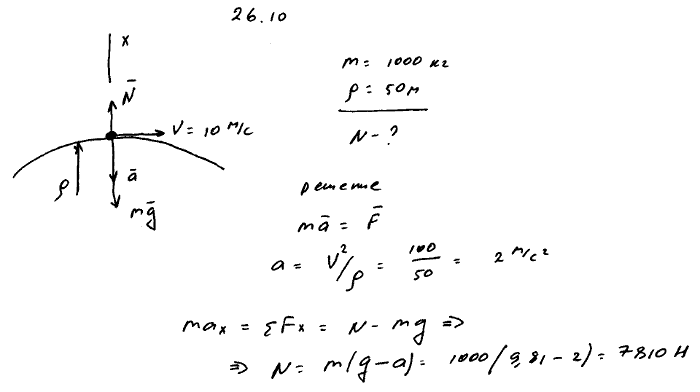 26.10
x
N̄
V = 10 м/с
ā
ρ
mḡ
m = 1000 кг
ρ = 50 м
N - ?
решение
mā = F̄
a = V²/ρ = 100/50 = 2 м/с²
maₓ = ΣFₓ = N - mg ⇒
⇒ N = m(g - a) = 1000(9,81 - 2) = 7810 Н